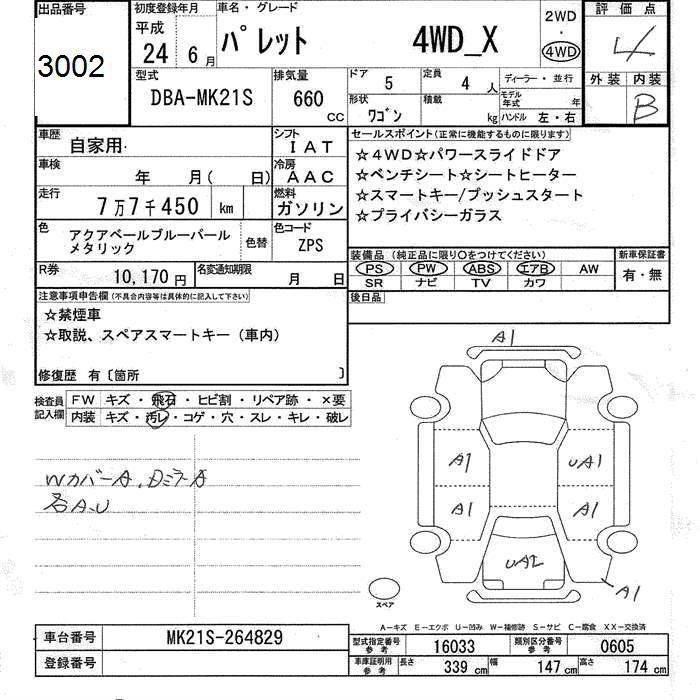 出品番号
3002
初度登録年月
平成
24 6月
車名・グレード
パレット 4WD_X
2WD
・
4WD
評価点
4
外装 内装
B
型式
DBA-MK21S
排気量
660 CC
ドア 5
定員 4人
形状 ワゴン
積載 kg
ディーラー・並行
モデル年式 年
ハンドル 左・右
車歴 自家用
シフト IAT
車検 年 月( 日)
冷房 AAC
走行 7万7千450 km
燃料 ガソリン
色 アクアベールブルーパール
メタリック
色替
色コード ZPS
R券 10,170円
名変通知期限 月 日
セールスポイント(正常に機能するものに限ります)
☆4WD☆パワースライドドア
☆ベンチシート☆シートヒーター
☆スマートキー/プッシュスタート
☆プライバシーガラス
装備品(純正品に限り○をつけてください)
新車保証書
PS PW ABS エアB AW
SR ナビ TV カワ
有・無
後日品
注意事項申告欄(不具合内容等は具体的に記入して下さい)
☆禁煙車
☆取説、スペアスマートキー(車内)
修復歴 有〔箇所 〕
検査員
記入欄
FW キズ・飛石・ヒビ割・リペア跡・×要
内装 キズ・汚レ・コゲ・穴・スレ・キレ・破レ
WカバーA、DミラーA
各A、U
A1
A1 UA1
A1 A1
UA2
A1
スペア
A-キズ E-エクボ U-凹み W-補修跡 S-サビ C-腐食 XX-交換済
車台番号 MK21S-264829
登録番号
型式指定番号
参考
16033
類別区分番号
参考
0605
車庫証明用
参考
長さ 339 cm
幅 147 cm
高さ 174 cm